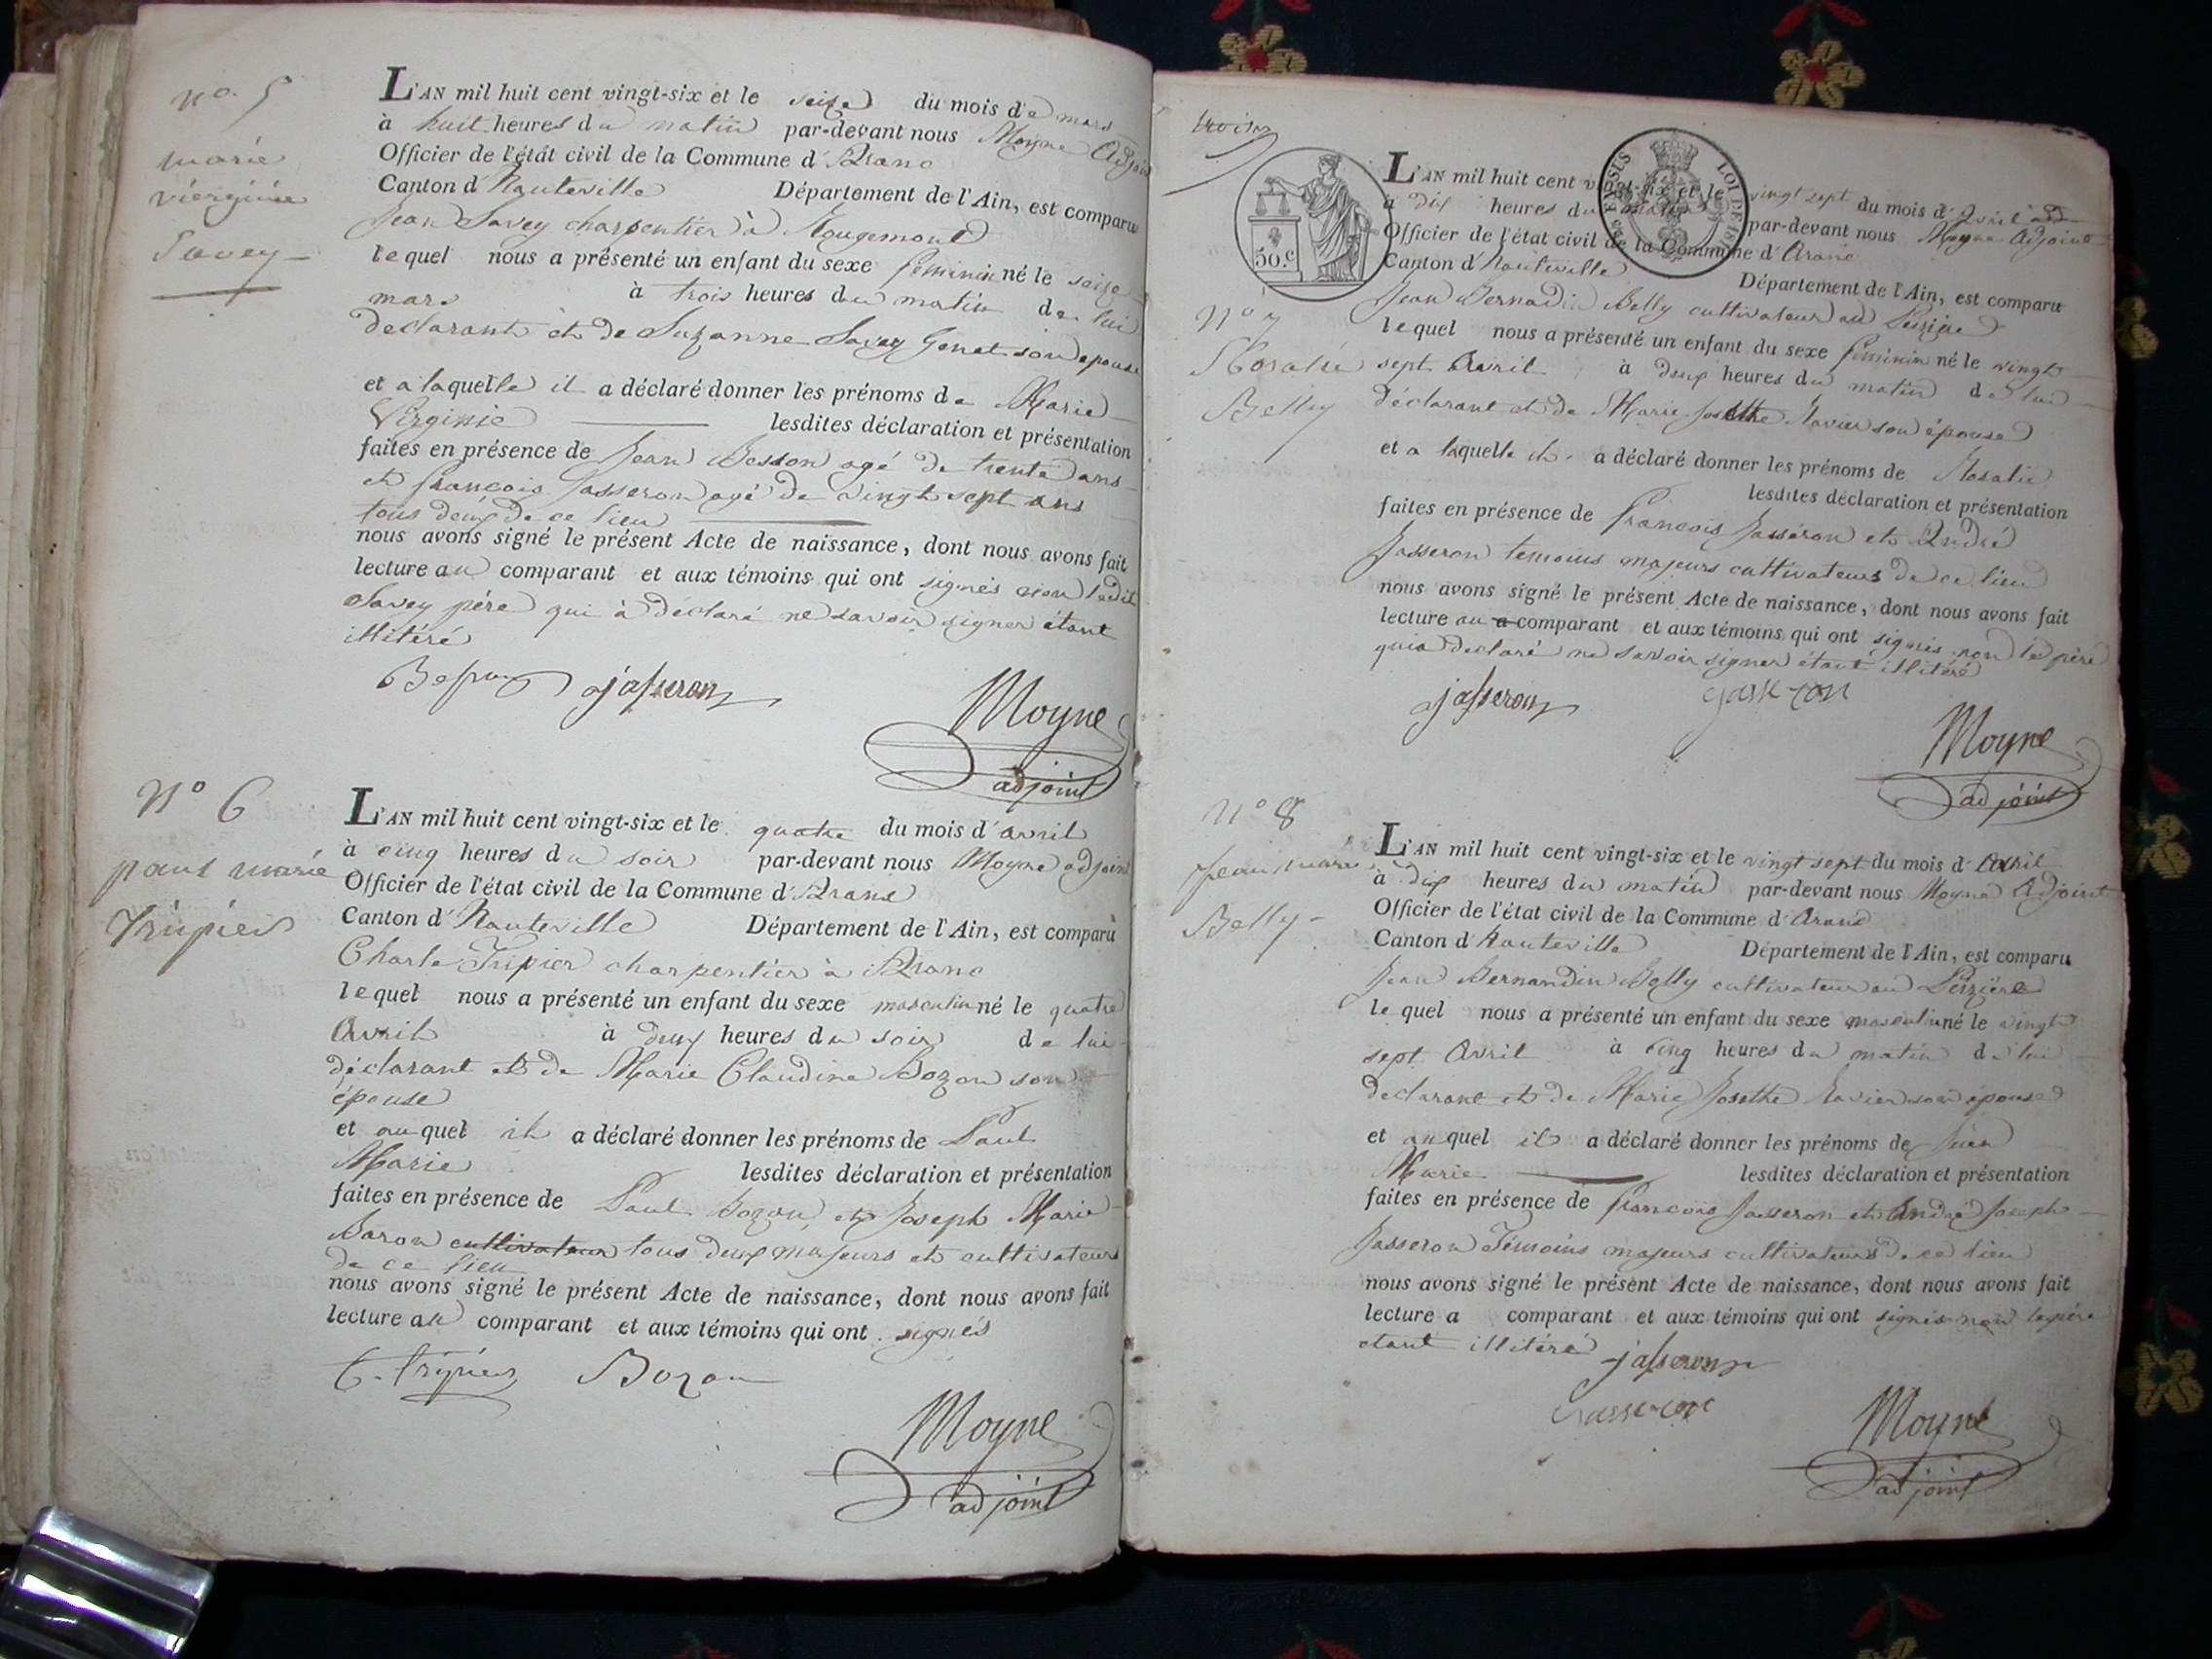 n°. 5
marie
vierginie
Savey
L'AN mil huit cent vingt-six et le seize du mois de mars
à huit heures du matin par-devant nous Moyne Adjoint
Officier de l'état civil de la Commune d'Aranc
Canton d'hauteville Département de l'Ain, est comparu
Jean Savey charpentier à Rougemont
lequel nous a présenté un enfant du sexe féminin né le seize
mars à trois heures du matin de lui
déclarant et de Suzanne Savey Genet son epouse
et a laquelle il a déclaré donner les prénoms de Marie
Virginie lesdites déclaration et présentation
faites en présence de Jean Besson agé de trente ans
et françois Jasseron agé de vingt sept ans
tous deux de ce lieu
nous avons signé le présent Acte de naissance, dont nous avons fait
lecture au comparant et aux témoins qui ont signés non ledit
Savey père qui à déclaré ne savoir signer étant
illitéré
Besson jasseron
Moyne
adjoint
N° 6
paul marie
Tripier
L'AN mil huit cent vingt-six et le quatre du mois d'avril
à cinq heures du soir par-devant nous Moyne adjoint
Officier de l'état civil de la Commune d'Aranc
Canton d'hauteville Département de l'Ain, est comparu
Charle Tripier charpentier à Aranc
lequel nous a présenté un enfant du sexe masculin né le quatre
Avril à deux heures du soir de lui
déclarant et de Marie Claudine Bozon son
épouse
et auquel il a déclaré donner les prénoms de Paul
Marie lesdites déclaration et présentation
faites en présence de Paul Bozon et Joseph Marie
Baron cultivateur tous deux majeurs et cultivateurs
de ce lieu
nous avons signé le présent Acte de naissance, dont nous avons fait
lecture au comparant et aux témoins qui ont signés
C. Tripier Bozon
Moyne
adjoint
trois
50.c
LOI DE 18
N° 7
Rosalie
Belly
L'AN mil huit cent vingt-six et le vingt sept du mois d'Avril
à dix heures du matin par-devant nous Moyne Adjoint
Officier de l'état civil de la Commune d'Aranc
Canton d'hauteville Département de l'Ain, est comparu
Jean Bernadin Belly cultivateur au
lequel nous a présenté un enfant du sexe féminin né le vingt
sept Avril à deux heures du matin de lui
déclarant et de Marie Josethe Ravier son épouse
et a laquelle il a déclaré donner les prénoms de Rosalie
lesdites déclaration et présentation
faites en présence de françois Jasseron et André
Jasseron temoins majeurs cultivateurs de ce lieu
nous avons signé le présent Acte de naissance, dont nous avons fait
lecture au a comparant et aux témoins qui ont signés non le père
qui a declaré ne savoir signer étant illitéré
jasseron jasseron
Moyne
adjoint
N° 8
jean marie
Belly
L'AN mil huit cent vingt-six et le vingt sept du mois d'Avril
à dix heures du matin par-devant nous Moyne Adjoint
Officier de l'état civil de la Commune d'Aranc
Canton d'hauteville Département de l'Ain, est comparu
Jean Bernandin Belly cultivateur au
lequel nous a présenté un enfant du sexe masculin né le vingt
sept Avril à cinq heures du matin de lui
declarant et de Marie Josethe Ravier son épouse
et auquel il a déclaré donner les prénoms de Jean
Marie lesdites déclaration et présentation
faites en présence de françois Jasseron et André Joseph
Jasseron Témoins majeurs cultivateurs de ce lieu
nous avons signé le présent Acte de naissance, dont nous avons fait
lecture a comparant et aux témoins qui ont signés non le père
etant illitéré
jasseron
jasseron
Moyne
adjoint